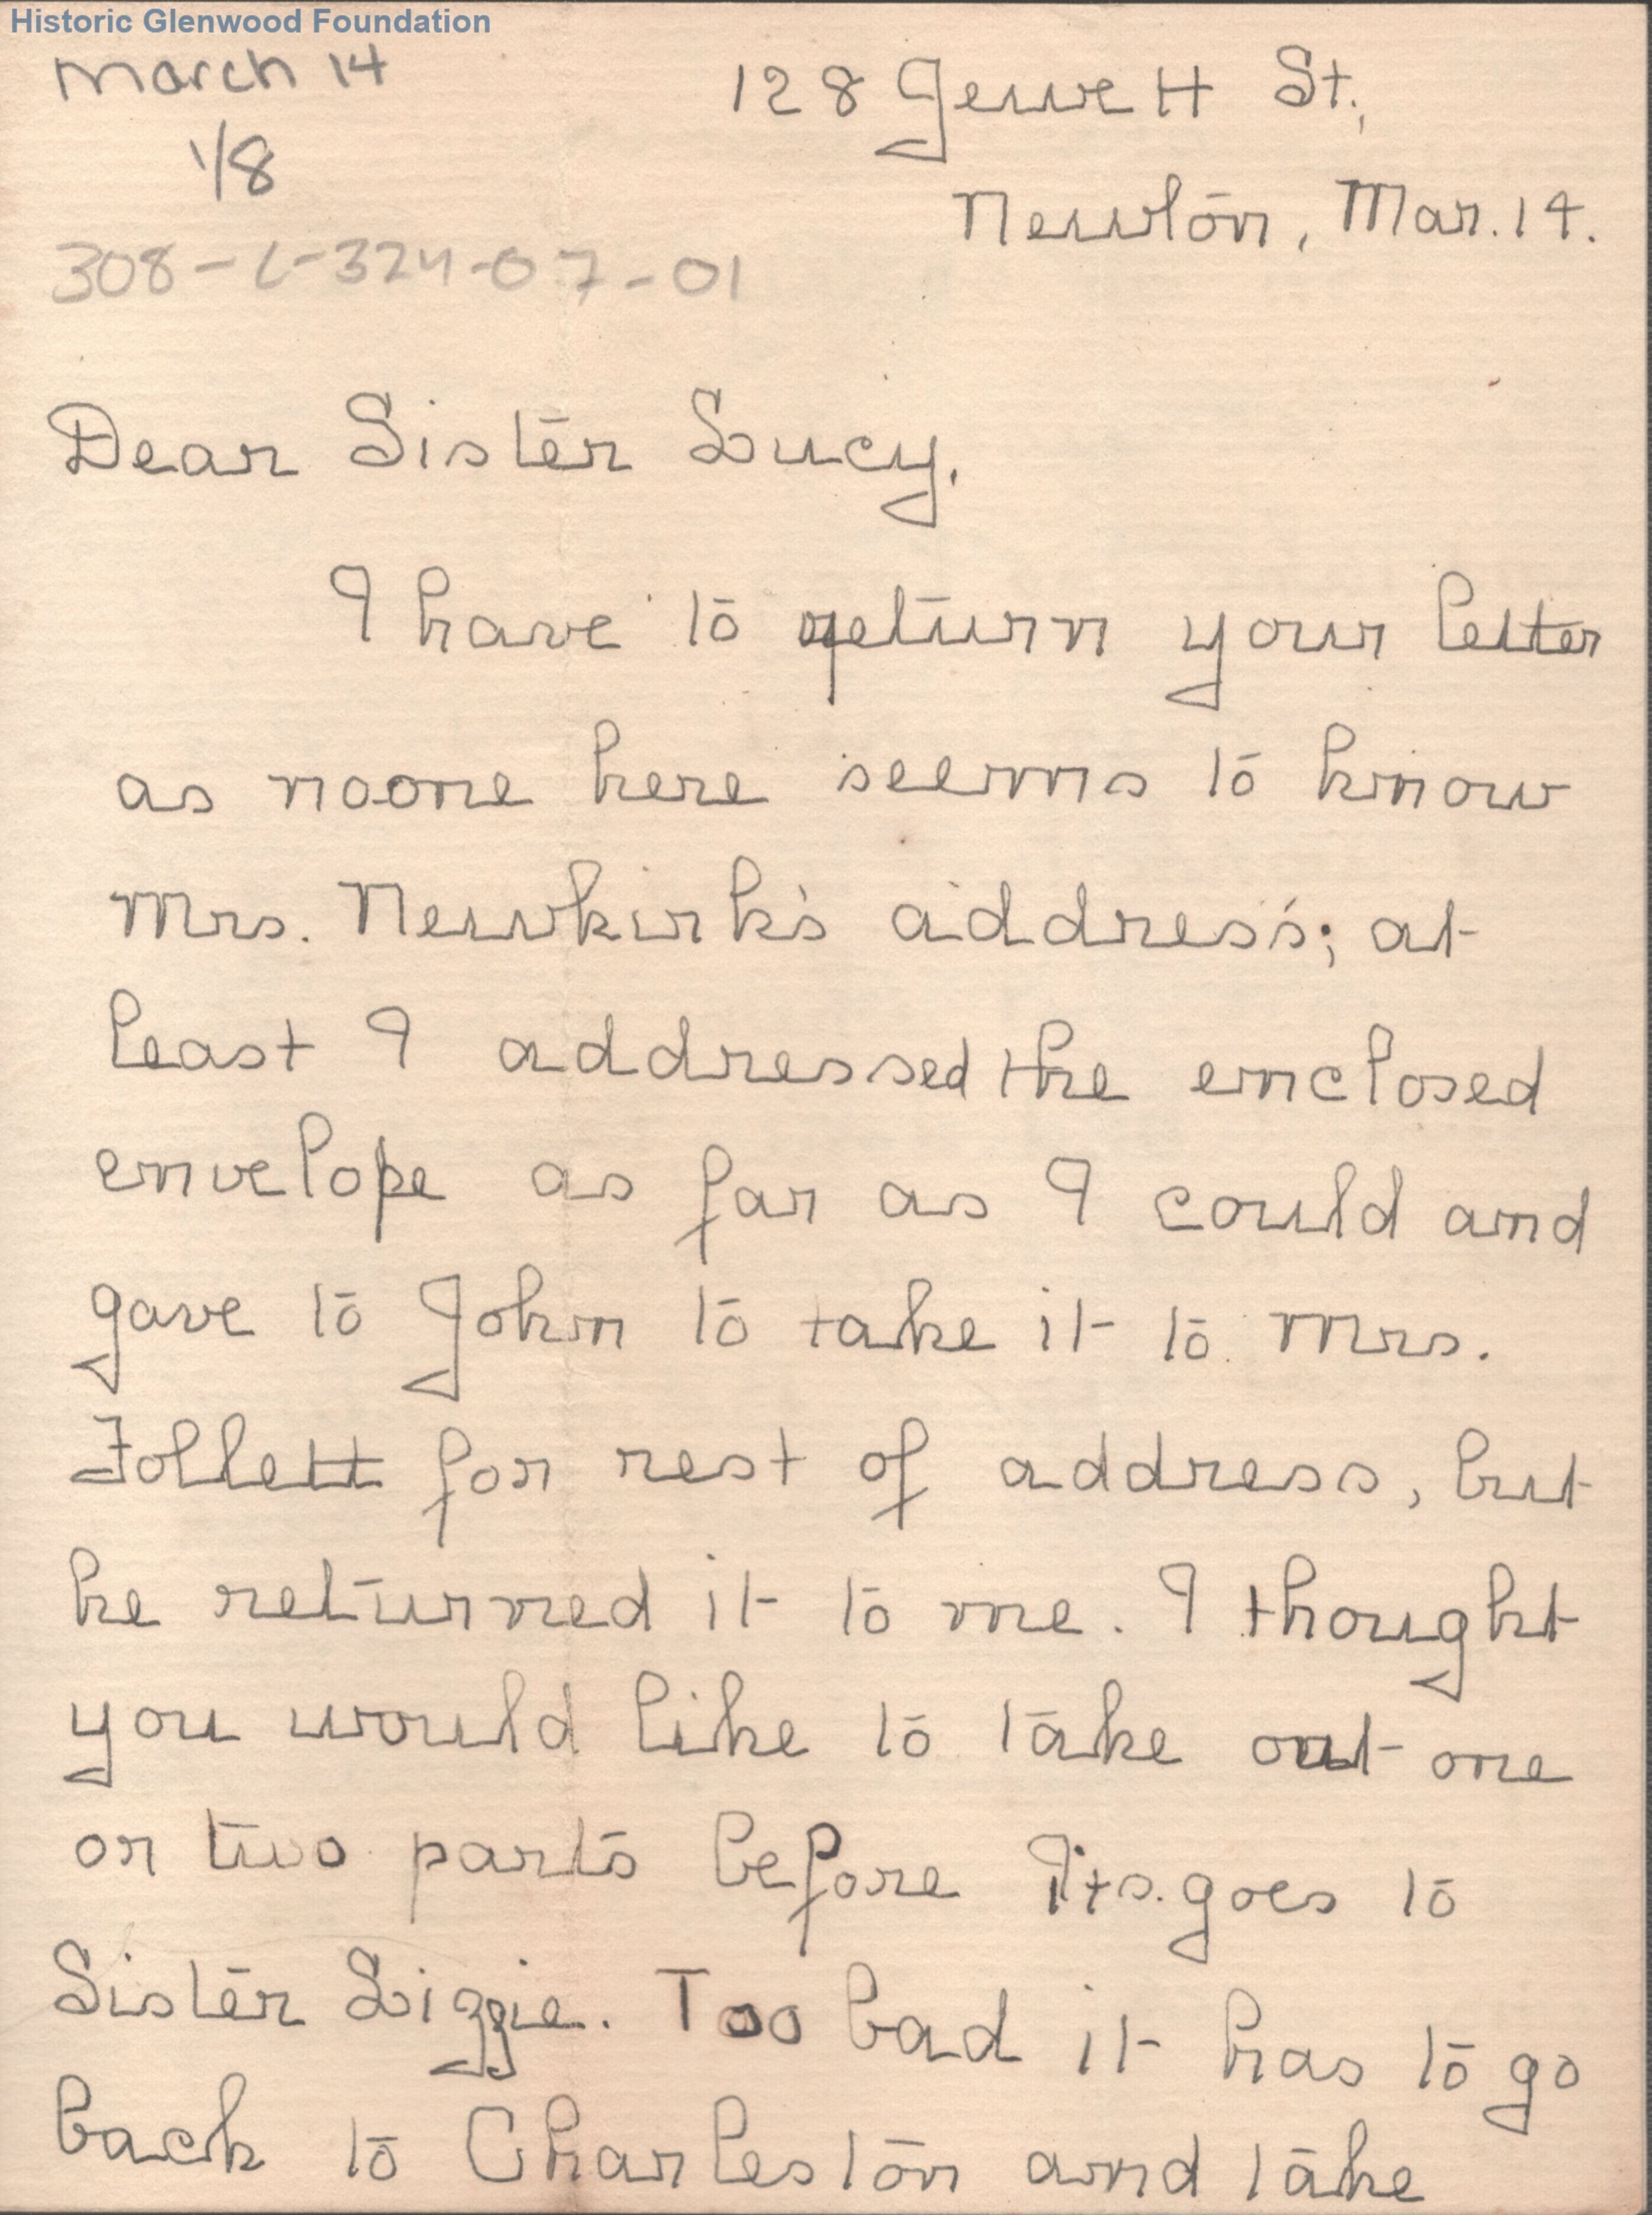 Historic Glenwood Foundation
March 14
1/8
308-L-324-07-01
128 Jewett St.,
Newton, Mar. 14.
Dear Sister Lucy,
I have to return your letter
as noone here seems to know
Mrs. Newkirk's address; at
least I addressed the enclosed
envelope as far as I could and
gave to John to take it to Mrs.
Follett for rest of address, but
he returned it to me. I thought
you would like to take out one
or two parts before its goes to
Sister Lizzie. Too bad it has to go
back to Charleston and take